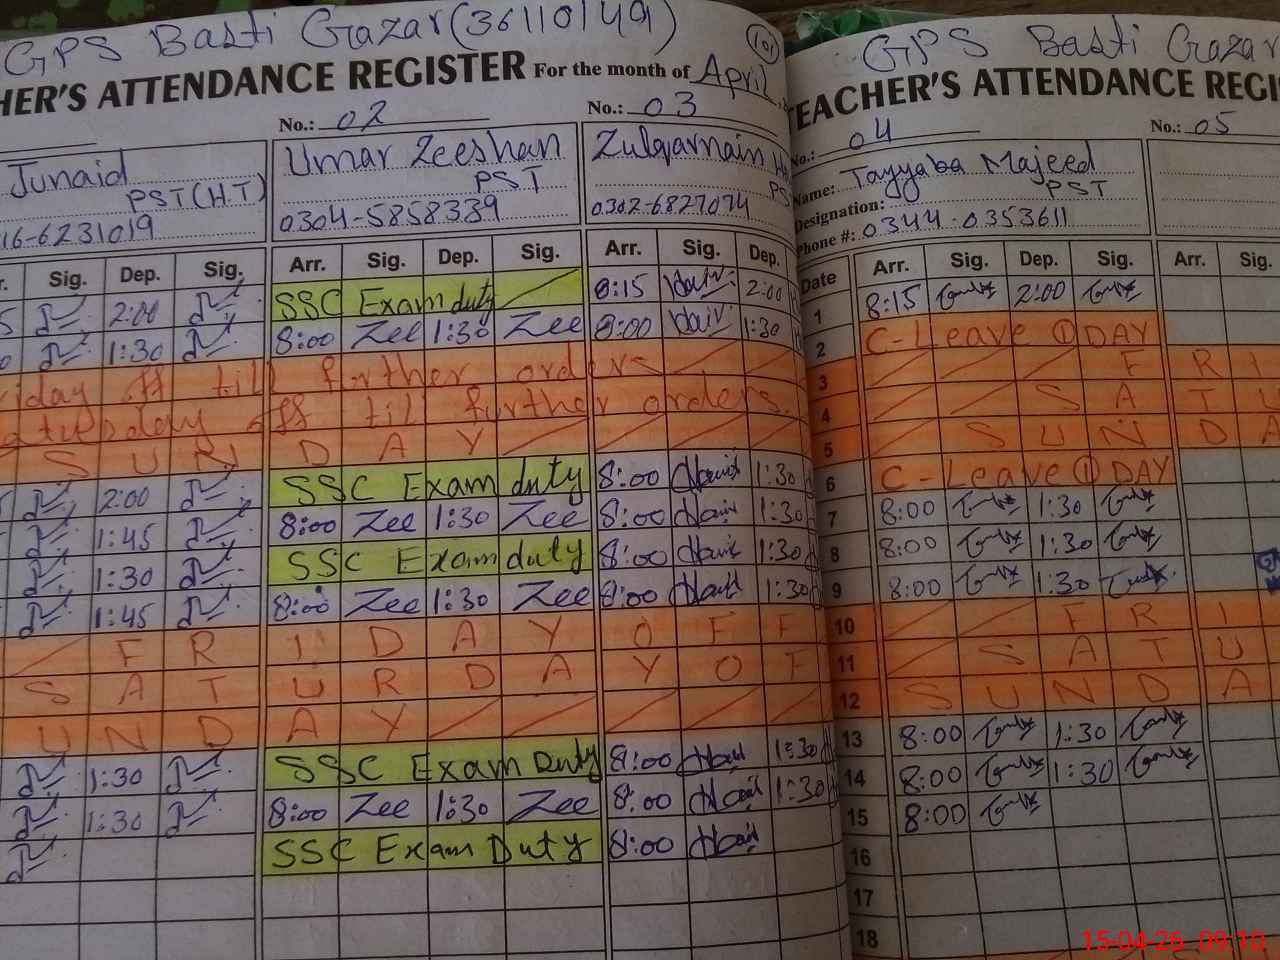 GPS Basti Gazar (36110149)
HER'S ATTENDANCE REGISTER For the month of April
101
No.: 02 No.: 03
Junaid Umar Zeeshan Zulqarnain
PST (H.T) PST PS
16-6231019 0304-5858339 0302-6827074
Sig. Dep. Sig. Arr. Sig. Dep. Sig. Arr. Sig. Dep.
2:00 SSC Exam duty 8:15 2:00
1:30 8:00 Zee 1:30 Zee 8:00 1:30
iday off till further orders
off till further orders.
S U N D A Y
2:00 SSC Exam duty 8:00 1:30
1:45 8:00 Zee 1:30 Zee 8:00 1:30
1:30 SSC Exam duty 8:00 1:30
1:45 8:00 Zee 1:30 Zee 8:00 1:30
F R I D A Y O F F
S A T U R D A Y O F
U N D A Y
1:30 SSC Exam Duty 8:00 1:30
1:30 8:00 Zee 1:30 Zee 8:00 1:30
SSC Exam Duty 8:00
GPS Basti Gazar
TEACHER'S ATTENDANCE REGI
No.: 04 No.: 05
Name: Tayyaba Majeed
Designation: PST
Phone #: 0344-0353611
Date Arr. Sig. Dep. Sig. Arr. Sig.
1 8:15 2:00
2 C-Leave 1 DAY
3 F R I
4 S A T U
5 S U N D A
6 C-Leave 1 DAY
7 8:00 1:30
8 8:00 1:30
9 8:00 1:30
10 F R I
11 S A T U
12 S U N D A
13 8:00 1:30
14 8:00 1:30
15 8:00
16
17
18
15-04-26 09:10